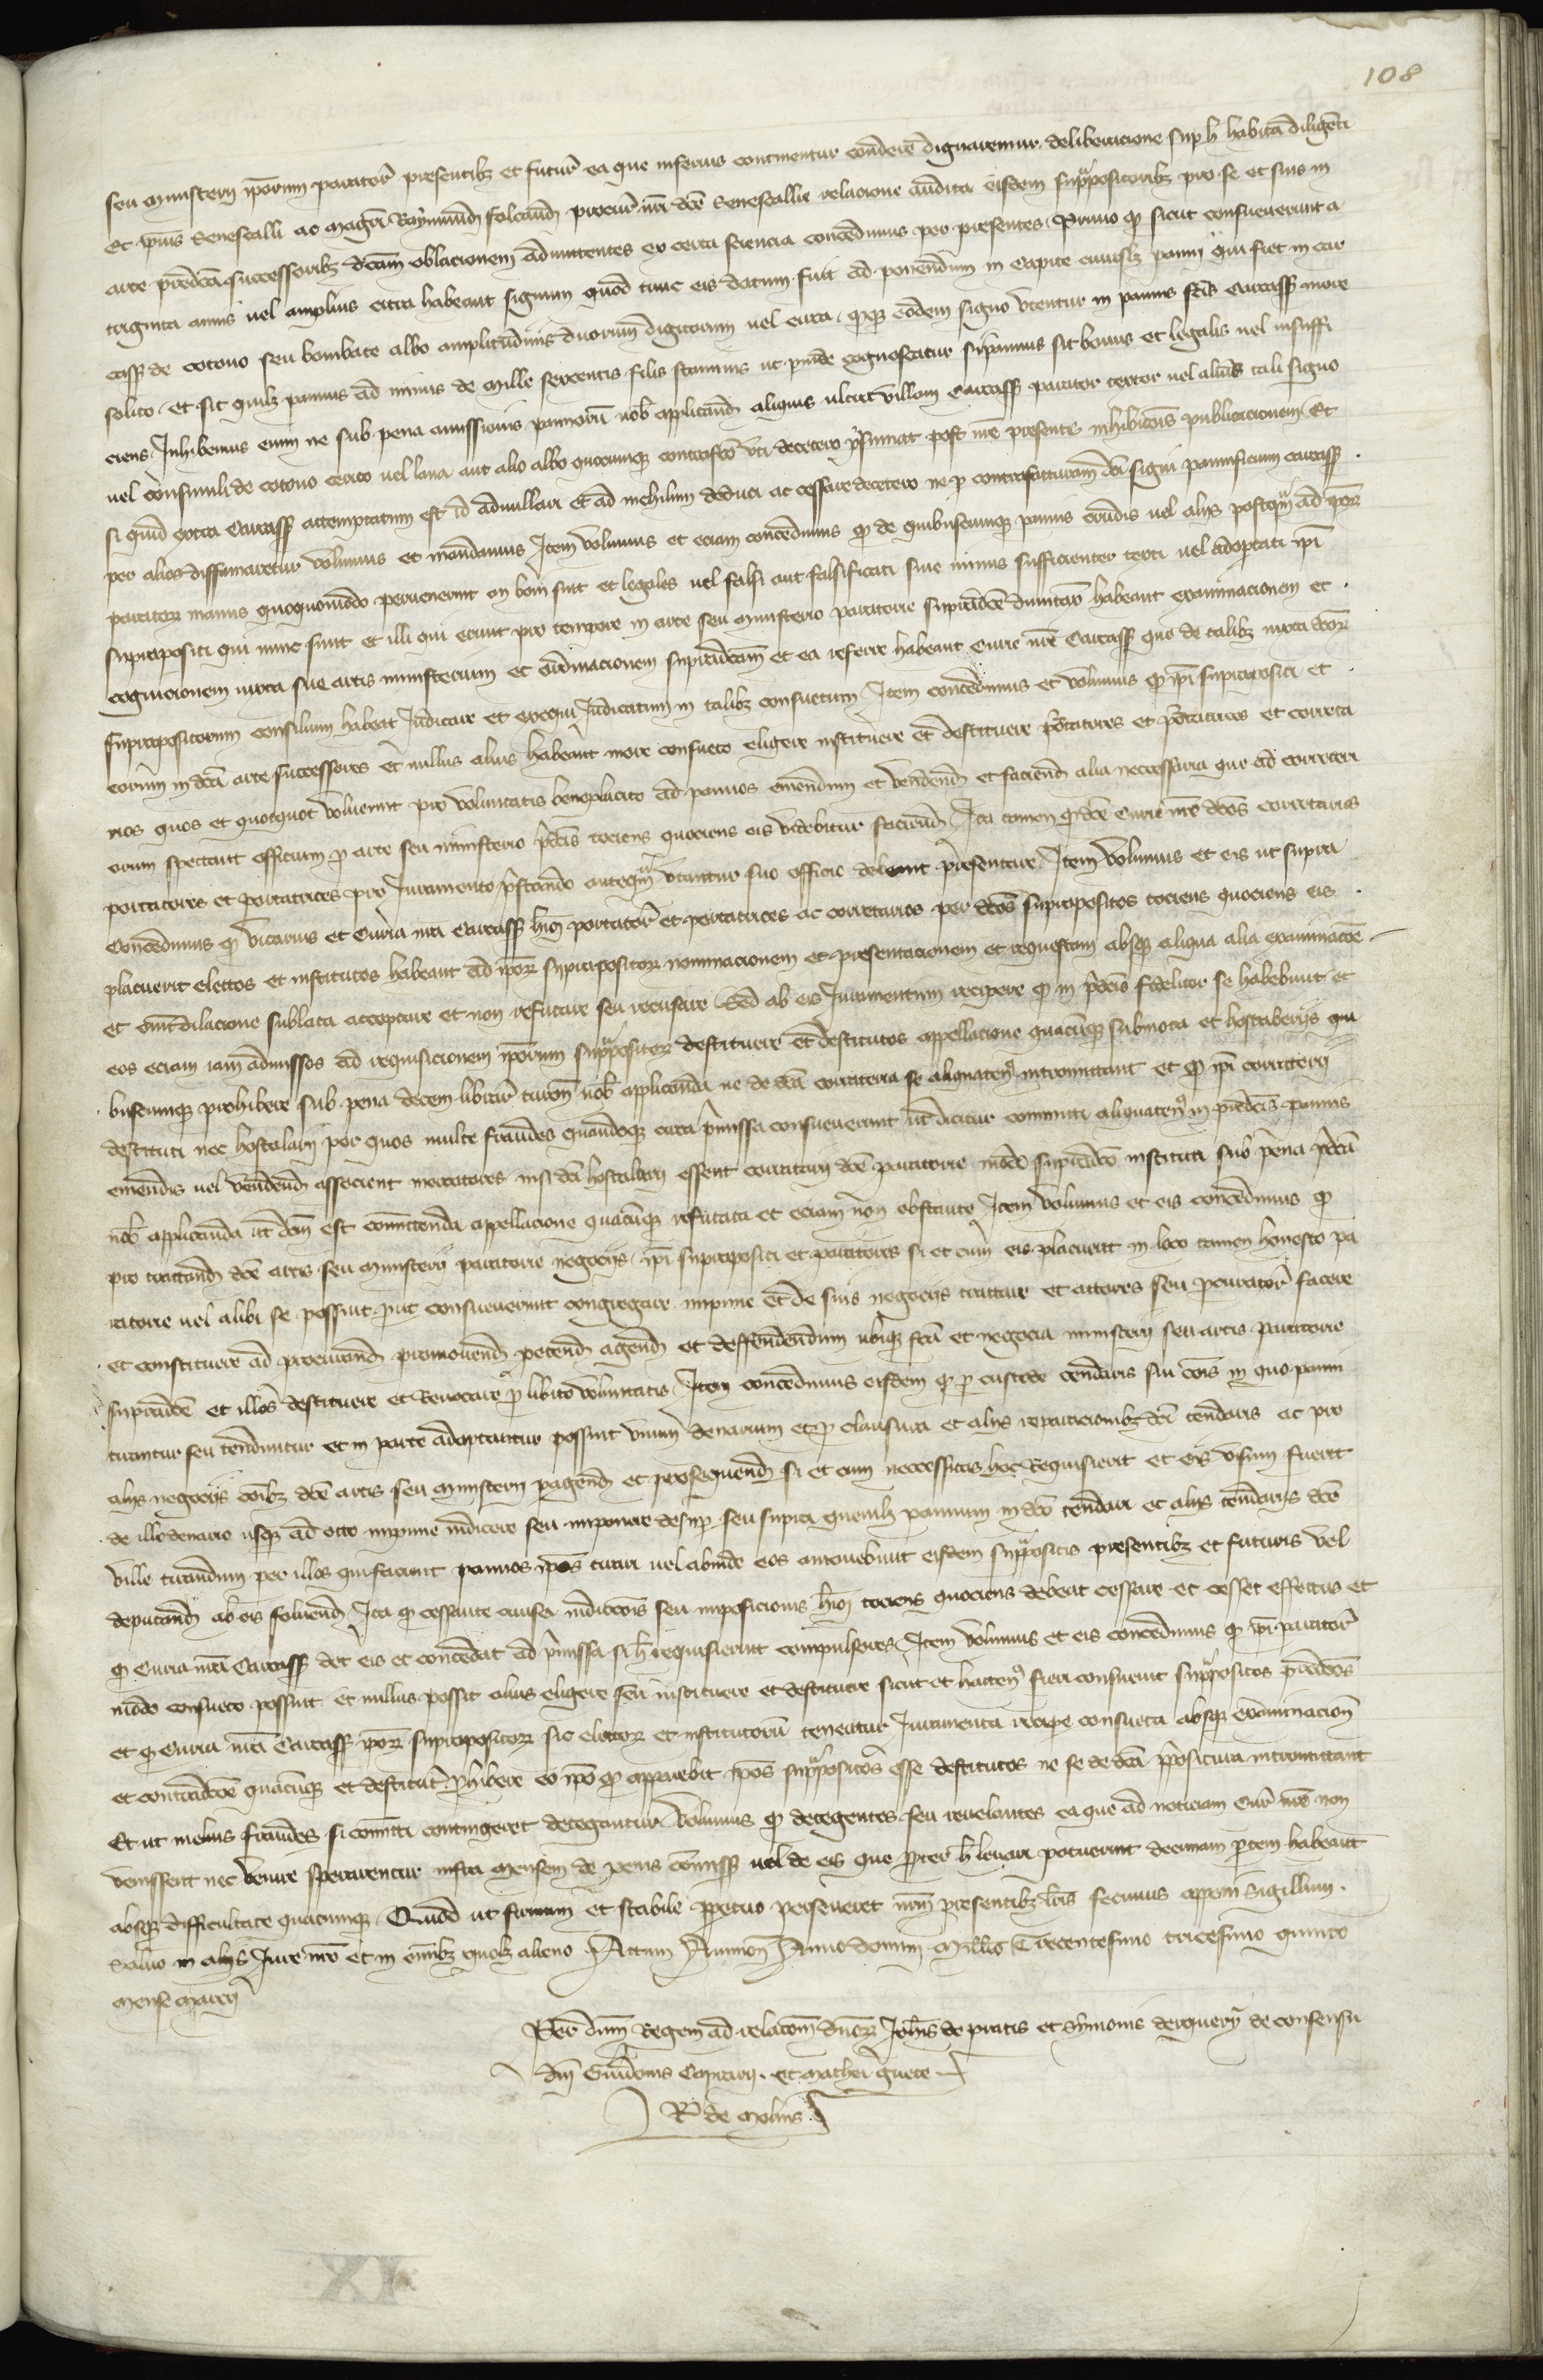 108
seu ministerii ipōrum paratoꝝ presentibꝫ et futuꝝ ea que inferius continentur concedere dignaremur. deliberacione sup h̄ habita diligēti
Et ipius Senescalli ac magrī Raymundi Folcaud procurꝝ nr̄i dc̄e Senescallie relacione audita eisdem suprapositoribꝫ pro se et suis in
arte predc̄a successoribꝫ dc̄am oblacionem admittentes ex certa sciencia concedimus per presentes. Primo ꝙ sicut consueuerunt a
triginta annis uel amplius citra habeant signum quod tunc eis datum fuit ad ponendum in capite cuiuslꝫ panni qui fiet in Car
cass̄ de cotono seu bombace albo amplitudinis duorum digitorum uel circa. quodqꝫ eodem signo utentur in pannis fc̄is Carcass̄ more
solito. et sit quilꝫ pannus ad minus de mille sexcentis filis staminis ut proinde cognoscatur si pannus sit bonus et legalis uel insuffi
ciens. Inhibemus enim ne sub pena amissionis pannorū nob̄ applicand aliquis ultra villam Carcass̄ parator textor uel alius tali signo
uel consimili de cotono certo uel lana aut alio albo quocumqꝫ contrafc̄o uti decetero p̄sumat post nr̄e presentis inhibicōis publicacionem. Et
si quid extra Carcass̄ attemptatum est id adnullari et ad nichilum deduci ac cessare decetero ne ꝑ contrafacturam dc̄i signi pannificium Carcass̄
per alios diffamaretur volumus et mandamus. Item volumus et eciam concedimus ꝙ de quibuscumqꝫ pannis crudis uel aliis postqᵃm ad ipoꝝ
paratoꝝ manus quoquomodo peruenerint an boni sint et legales uel falsi aut falsificati siue minus sufficienter texti uel adoptati ipī
suprapositi qui nunc sunt et illi qui erunt pro tempore in arte seu ministerio paratorie supradc̄e dumtaxat habeant examinacionem et
cognicionem iuxta sue artis ministerium et ordinacionem supradc̄am et ea referre habeant Curie nr̄e Carcass̄ que de talibꝫ iuxta dc̄oꝝ
suprapositorum consilium habeat Iudicare et exequi Iudicatum in talibꝫ consuetum. Item concedimus et volumus ꝙ ipī suprapositi et
eorum in dc̄a arte successores et nullus alius habeant more consueto eligere instituere et destituere portatores et portatrices et correta
rios quos et quotquot voluerint pro voluntatis beneplacito ad pannos emendum et vendend et faciend alia necessaria que ad corretari
orum spectant officium ꝑ arte seu ministerio p̄dc̄is tociens quociens eis videbitur faciend. Ita tamen ꝙ dc̄e Curie nr̄e dc̄os corretarios
portatores et portatrices pro Iuramento p̄stando anteqᵃm utantur suo officio debeant presentare. Item volumus et eis ut supra
concedimus ꝙ vicarius et Curia nr̄a Carcass̄ hīoi portatoꝝ et portatrices ac corretarios per dc̄os suprapositos tociens quociens eis
placuerit electos et institutos habeant ad ipoꝝ suprapositoꝝ nominacionem et presentacionem et requestam absqꝫ aliqua alia examinacōe
et omī dilacione sublata acceptare et non refutare seu recusare. Sed ab eis Iuramentum recipere ꝙ in p̄dc̄is fideliter se habebunt et
eos eciam iam admissos ad requisicionem ipōrum suprapositoꝝ destituere et destitutos appellacione quacumqꝫ submota et hostaleriis qui
buscumqꝫ prohibere sub pena decem librarꝝ turoñ nob̄ applicanda ne de dc̄a correteria se aliquatenꝰ intromittant et ꝙ ipī correterii
destituti nec hostalarii per quos multe fraudes quandoqꝫ circa p̄missa consueuerunt ut dicitur committi aliquatenꝰ in predc̄is pannis
emendis uel vendend associent mercatores nisi dc̄i hostalarii essent corretarii dc̄e paratorie modo supradc̄o instituti sub pena p̄dc̄a
nob̄ applicanda ut dc̄m est committenda appellacione quacumqꝫ refutata et eciam non obstante. Item volumus et eis concedimus ꝙ
pro tractand dc̄e artis seu ministerii paratorie negociis ipī suprapositi et paratores si et cum eis placuerit in loco tamen honesto pa
ratorie uel alibi se possint prut consueuerunt congregare impune et de suis negociis tractare et actores seu procuratoꝝ facere
et constituere ad procurand promouend petend agend et deffendendum ubiqꝫ fc̄a et negocia ministerii seu artis paratorie
supradc̄e et illos destituere et Reuocare ꝓ libito voluntatis. Item concedimus eisdem ꝙ ꝑ custode tendaris siui cōis in quo panni
tirantur seu tenduntur et in parte adoptantur possint vnum denarium et ꝓ clausura et aliis reparacionibꝫ dc̄i tendaris ac pro
aliis negociis oībꝫ dc̄e artis seu ministerii peragend et prosequend si et cum neccessitas hoc Requisierit et eis visum fuerit
de illo denario usqꝫ ad octo impune indicere seu imponere desup seu supra quemlꝫ pannum in dc̄o tendari et aliis tendariis dc̄e
ville tirandum per illos qui facient pannos ipōs tirari uel abinde eos amouebunt eisdem suprapositis presentibꝫ et futuris vel
deputand ab eis soluend. Ita ꝙ cessante causa indiccōis seu imposicionis hīoi tociens quociens debeat cessare et cesset effectus et
ꝙ Curia nr̄a Carcass̄ det eis et concedat ad p̄missa si h̄ requisierint compulsores. Item volumus et eis concedimus ꝙ ipī paratoꝝ
modo consueto possint et nullus possit alius eligere seu instituere et destituere sicut et hactenꝰ fieri consueuit suprapositos predc̄os
et ꝙ Curia nr̄a Carcass̄ ipoꝝ suprapositoꝝ sic electoꝝ et institutorū teneatur Iuramenta recipe consueta absqꝫ examinacioñ
et contradicc̄oe quacumqꝫ et destitutꝭ prohibere eo ipō ꝙ apparebit ipōs suprapositos esse destitutos ne se de dc̄a p̄positura intromittant
Et ut melius fraudes si committi contingeret detegantur. Volumus ꝙ detegentes seu reuelantes ea que ad noticiam Curꝭ nr̄e non
venissent nec venire sperarentur infra mensem de penis commiss̄ uel de eis que propter h̄ leuari potuerint decimam partem habeant
absqꝫ difficultate quacumqꝫ. Quod ut firmum et stabile ꝑpetuo perseueret nr̄m presentibꝫ lr̄is fecimus apponi Sigillum.
saluo in aliis Iure nr̄o et in oībꝫ quolꝫ alieno. Actum Auinioñ Anno domini Millo Trecentesimo tricesimo quinto
mense marcii
Per dn̄m Regem ad relacōem dn̄oꝝ Joh̄is de pratis et symonis derquery de consensu
dn̄i Guidonis Caprarii. et mathei guete
R de molins